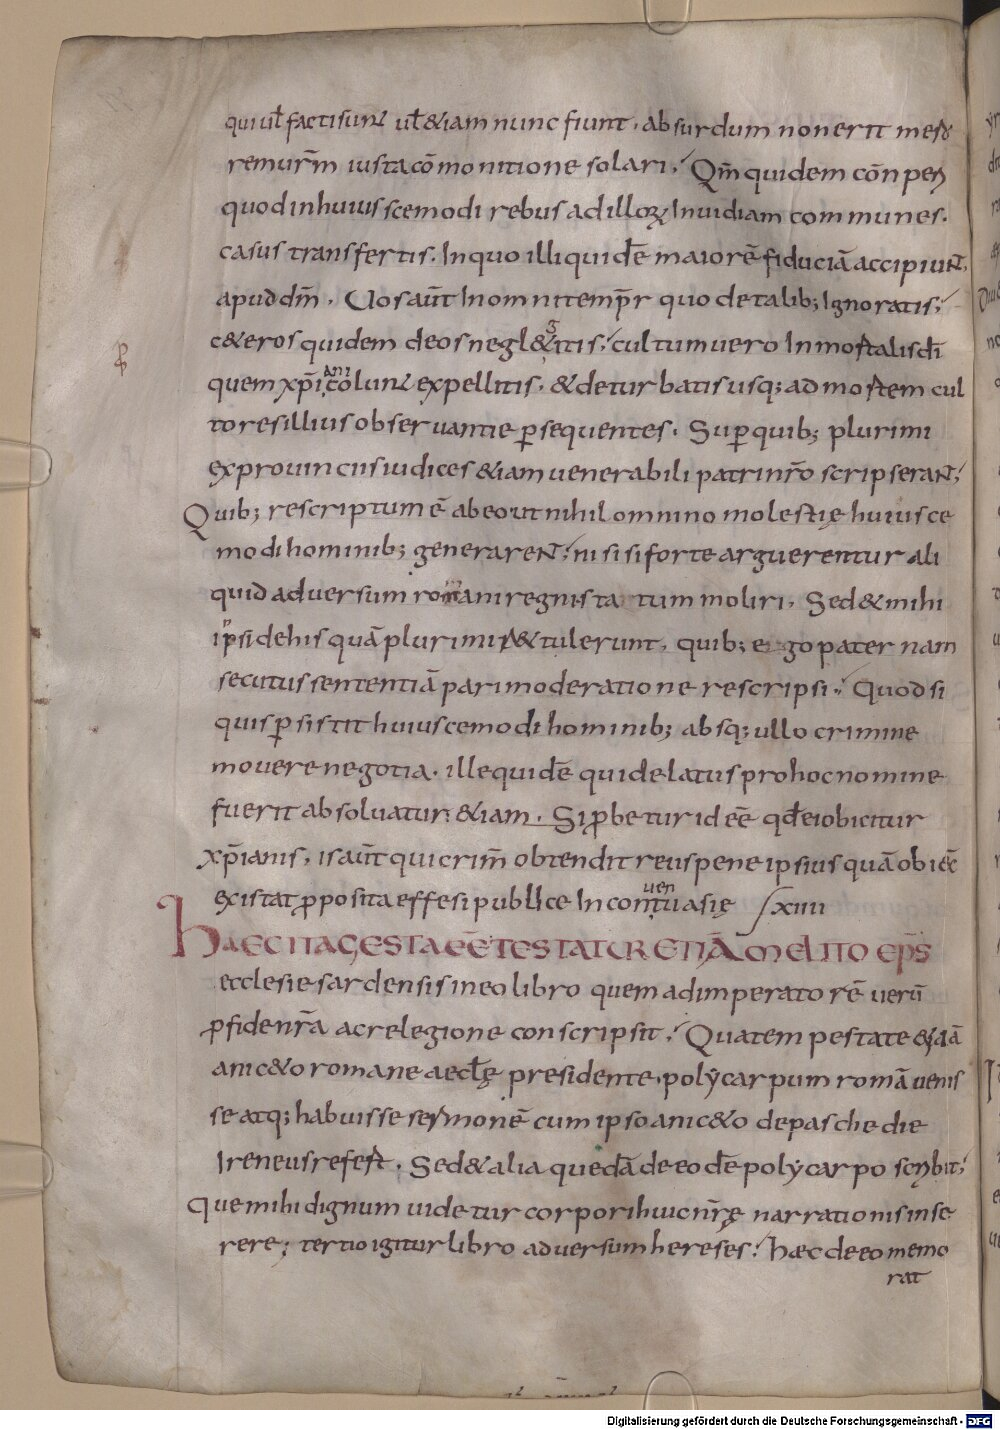 qui ul̄ facti sunt ul̄ &iam nunc fiunt. absurdum non erit me sr̄
remur̄m iusta cōmonitione solari; Qm̄ quidem cōnperi
quod in huiuscemodi rebus ad illorꝝ Inuidiam communes.
casus transfertis. In quo illi quidē maiorē fiduciā accipiunt.
apud dm̄. Uos aūt In omni temp̄r quo de talib; Ignoratis;
c&eros quidem deos negl&gitis; cultum uero Inmortalis dī
quem xp̄iani colunt expellitis. & deturbatis usq; ad mortem cul
tores illius obseruantie ꝑsequentes. Suꝑ quib; plurimi
ex prouinciis iudices &iam uenerabili patri nr̄o scripserant;
Quib; rescriptum ē ab eo ut nihil omnino molestię huiusce
modi hominib; generarent; nisi si forte arguerentur ali
quid aduersum romani regni statum moliri. Sed & mihi
ipsi de his quā plurimi r&tulerunt. quib; ergo pater nam
secutus sententiā pari moderatione rescripsi; Quod si
quis ꝑsistit huiuscemodi hominib; absq; ullo crimine
mouere negotia. ille quidē qui delatus pro hoc nomine
fuerit absoluatur; &iam. Si ꝓbetur id eē qd̄ ei obicitur
xp̄ianis. is aūt qui crim̄ obtendit reus pene ipsius quā obiec̄
existat ꝓposita effesi publice In conuentu asię / xiiii
Haec ita gesta eē testatur etiā melito ep̄s
ecclesie sardensis in eo libro quem ad imperatorē uerū
ꝓ fide nr̄a ac relegione conscripsit; Qua tempestate & iā
anic&o romane aeclę presidente. polẏcarpum romā uenis
se atq; habuisse sermonē cum ipso anic&o de pasche die
Ireneus refert. Sed & alia quedā de eodē polẏcarpo scribit;
Que mihi dignum uidetur corpori huic nr̄ę narrationis inse
rere; tertio igitur libro aduersum hereses; hæc de eo memo
rat